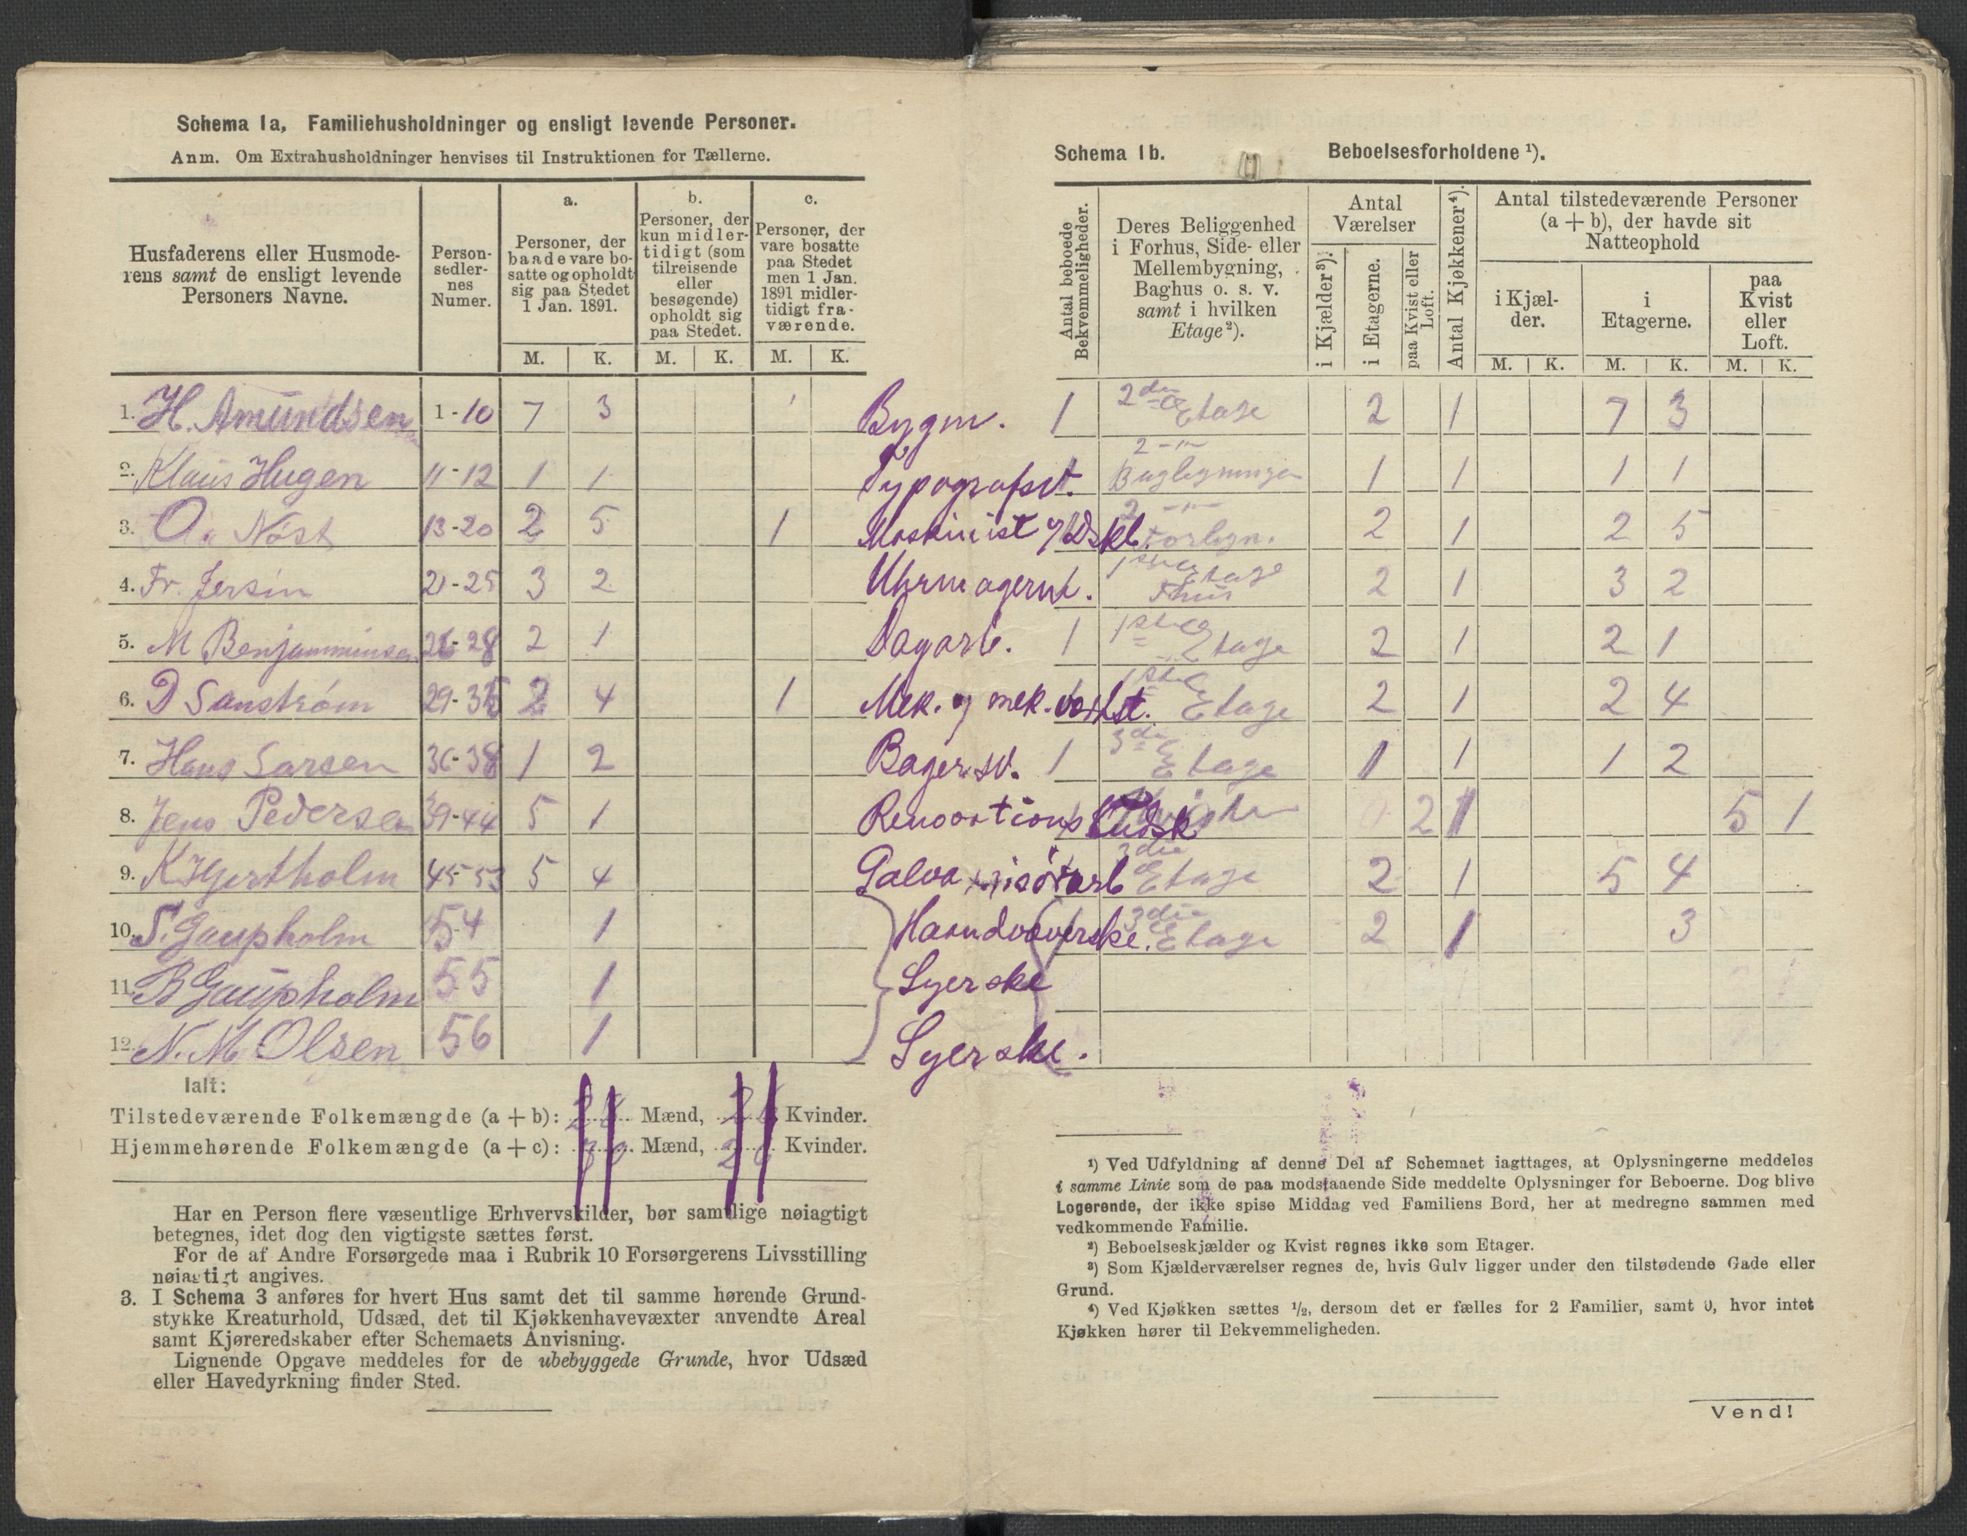 Schema 1a, Familiehusholdninger og ensligt levende Personer.
Anm. Om Extrahusholdninger henvises til Instruktionen for Tællerne.
Husfaderens eller Husmoderens samt de ensligt levende Personers Navne.
Personsedlernes Numer.
a.
Personer, der baade vare bosatte og opholdt sig paa Stedet 1 Jan. 1891.
b.
Personer, der kun midlertidigt (som tilreisende eller besøgende) opholdt sig paa Stedet.
c.
Personer, der vare bosatte paa Stedet men 1 Jan. 1891 midlertidigt fraværende.
M. K. M. K. M. K.
1. H. Amundsen 1-10 7 3
2. Klaus Hugen 11-12 1 1
3. O. Nøst 13-20 2 5 1
4. Fr. Jersin 21-25 3 2
5. M Benjamminsen 26-28 2 1
6. D Sanstrøm 29-35 2 4 1
7. Hans Larsen 36-38 1 2
8. Jens Pedersen 39-44 5 1
9. K Hjertholm 45-53 5 4
10. S. Gaupholm 54 1
11. B Gaupholm 55 1
12. N. M. Olsen 56 1
Ialt:
Tilstedeværende Folkemængde (a + b): 28 Mænd, 26 Kvinder.
Hjemmehørende Folkemængde (a + c): 30 Mænd, 26 Kvinder.
Har en Person flere væsentlige Erhvervskilder, bør samtlige nøiagtigt
betegnes, idet dog den vigtigste sættes først.
For de af Andre Forsørgede maa i Rubrik 10 Forsørgerens Livsstilling
nøiagtigt angives.
3. I Schema 3 anføres for hvert Hus samt det til samme hørende Grund-
stykke Kreaturhold, Udsæd, det til Kjøkkenhavevæxter anvendte Areal
samt Kjøreredskaber efter Schemaets Anvisning.
Lignende Opgave meddeles for de ubebyggede Grunde, hvor Udsæd
eller Havedyrkning finder Sted.
Schema 1b. Beboelsesforholdene ¹).
Antal beboede Bekvemmeligheder.
Deres Beliggenhed i Forhus, Side- eller Mellembygning, Baghus o. s. v. samt i hvilken Etage²).
Antal Værelser
i Kjælder³).
i Etagerne.
paa Kvist eller Loft.
Antal Kjøkkener⁴).
Antal tilstedeværende Personer (a + b), der havde sit Natteophold
i Kjælder.
i Etagerne.
paa Kvist eller Loft.
M. K. M. K. M. K.
Bygm. 1 2den Etage 2 1 7 3
Typografsv. 2 -"- Bagbygningen 1 1 1 1
Maskinist 2 -"- Forbygn. 2 1 2 5
Uhrmagersv. 1ste Etage Fhus 2 1 3 2
Dagarb. 1 1ste Etage 2 1 2 1
Mek. og mek. 1ste Etage 2 1 2 4
Bagersv. 1 3die Etage 1 1 1 2
Renovations Kudsk 0 2 1 5 1
3die Etage 2 1 5 4
Haandvæverske. 3die Etage 2 1 3
Syerske
Syerske.
¹) Ved Udfyldning af denne Del af Schemaet iagttages, at Oplysningerne meddeles
i samme Linie som de paa modstaaende Side meddelte Oplysninger for Beboerne. Dog blive
Logerende, der ikke spise Middag ved Familiens Bord, her at medregne sammen med
vedkommende Familie.
²) Beboelseskjælder og Kvist regnes ikke som Etager.
³) Som Kjælderværelser regnes de, hvis Gulv ligger under den tilstødende Gade eller
Grund.
⁴) Ved Kjøkken sættes ½, dersom det er fælles for 2 Familier, samt 0, hvor intet
Kjøkken hører til Bekvemmeligheden.
Vend!